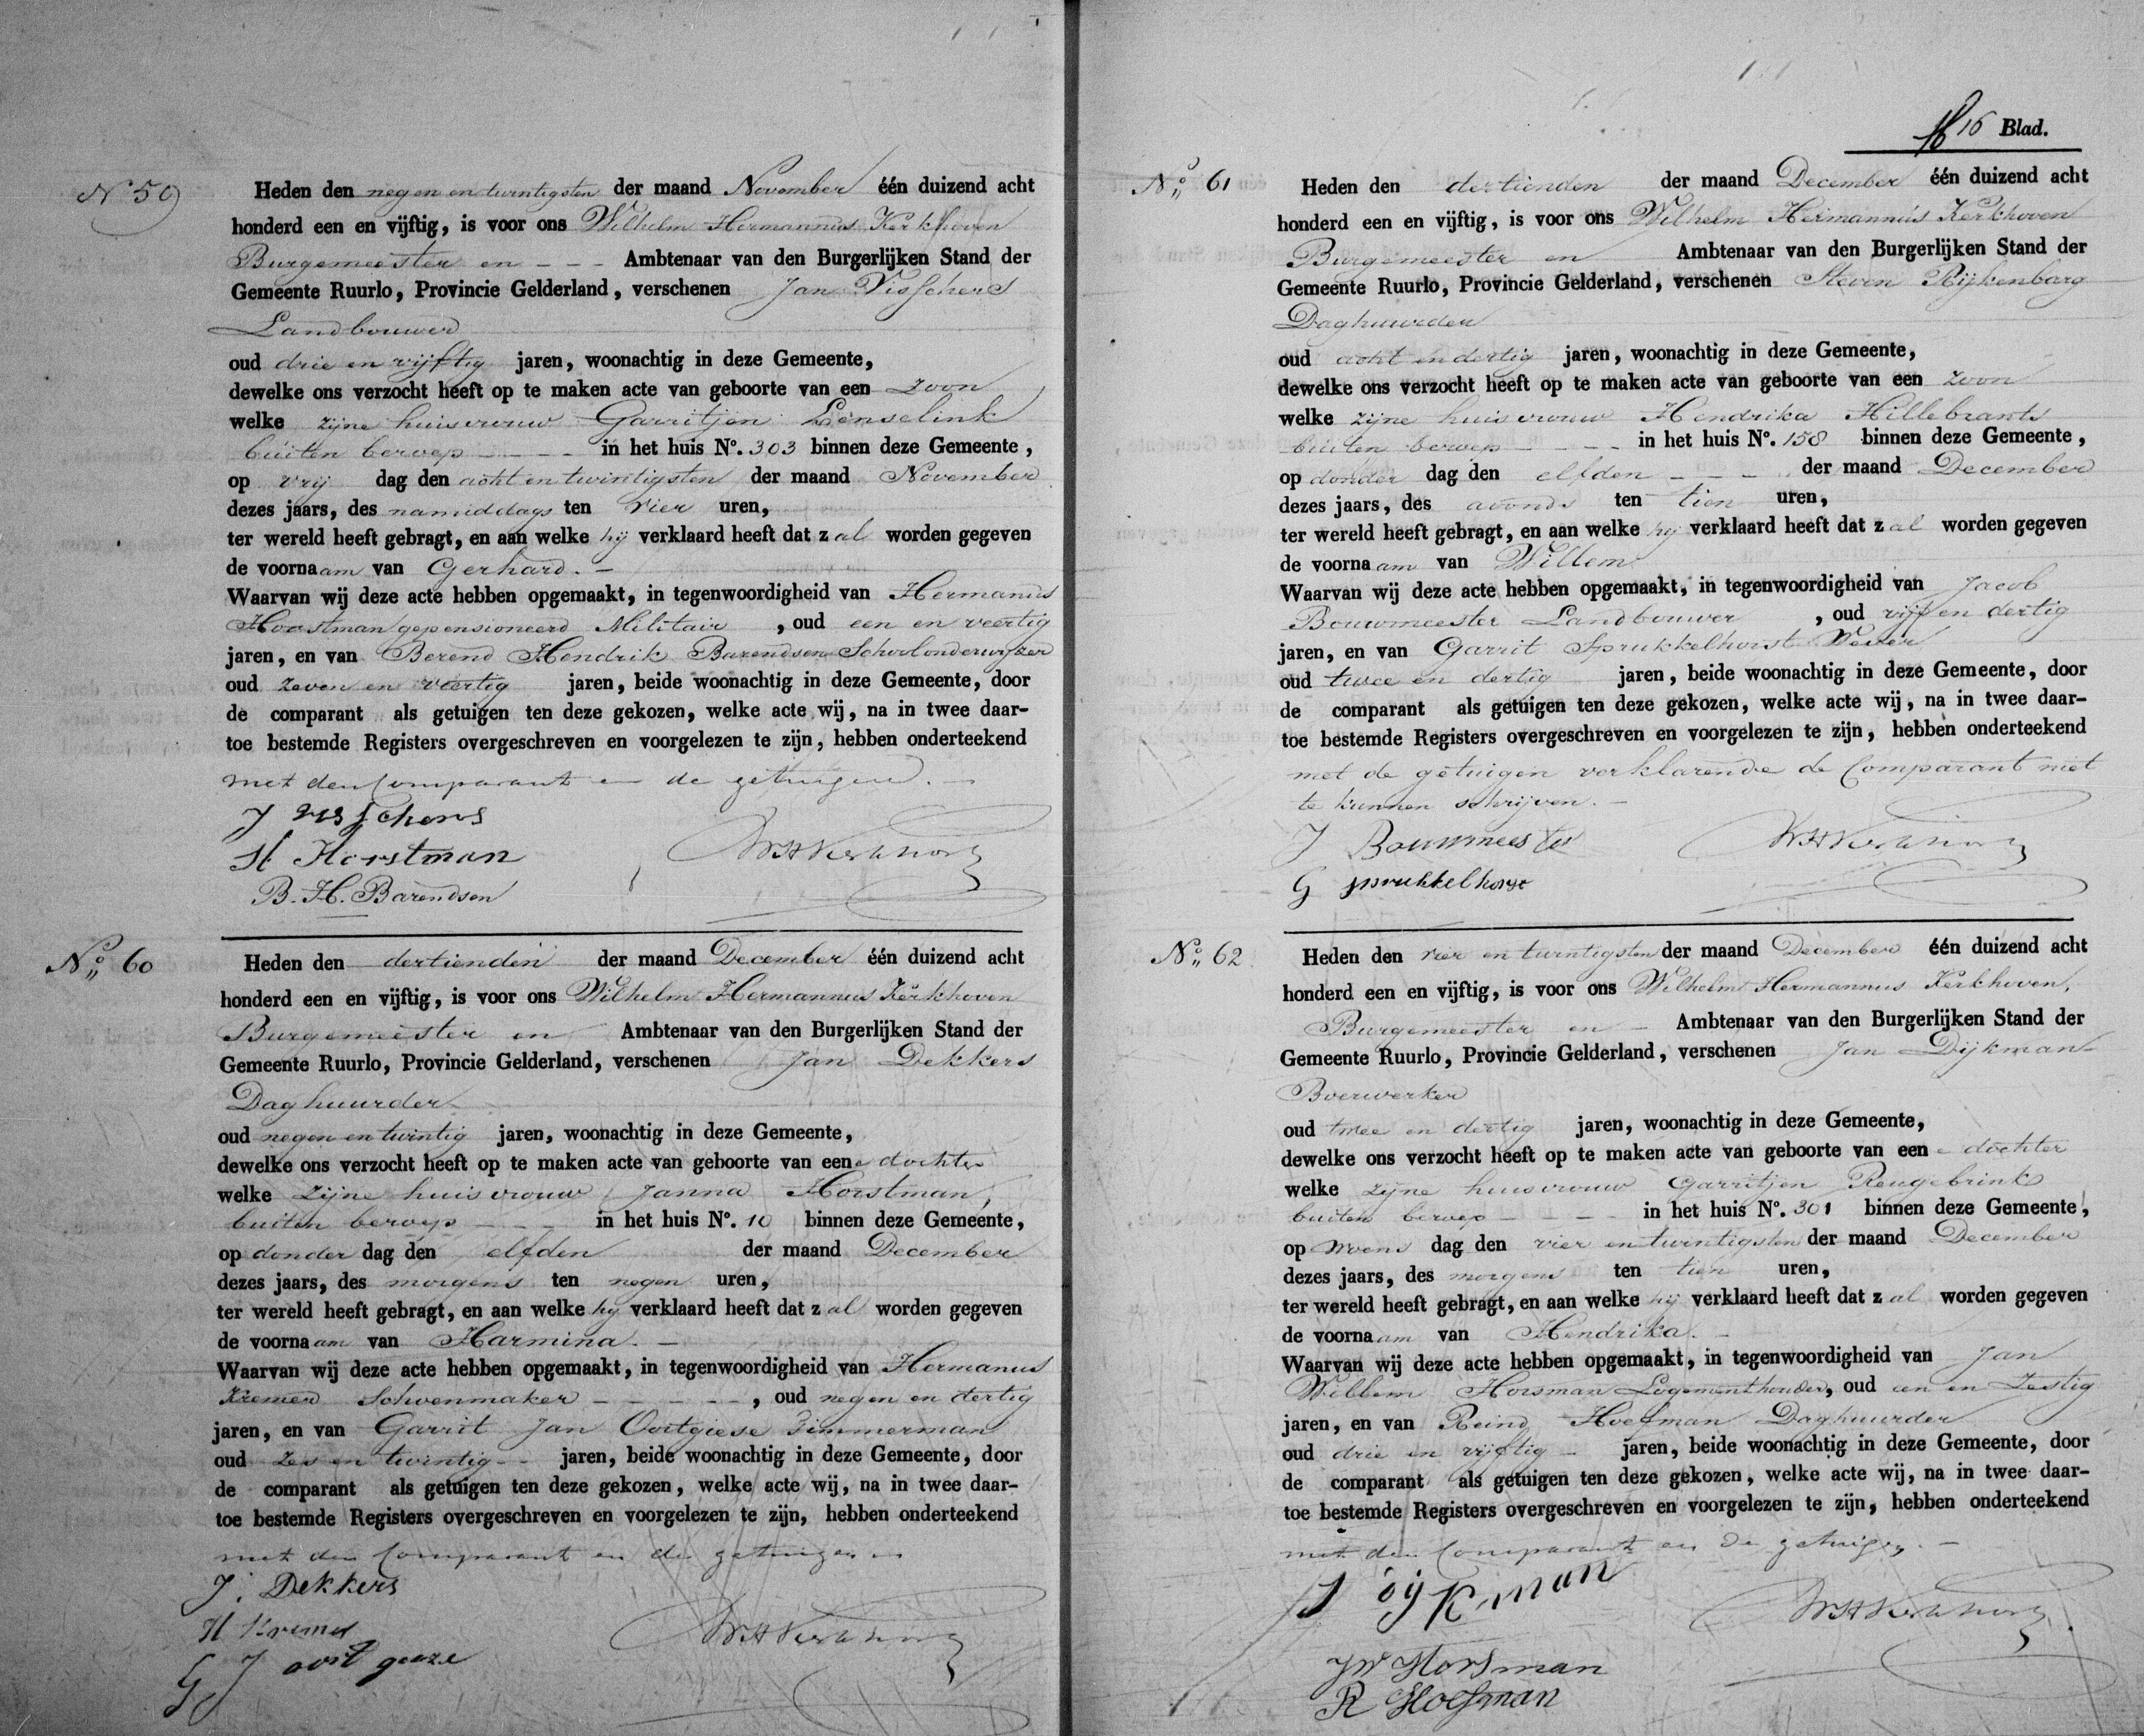 N 59
Heden den negen en twintigsten der maand November één duizend acht
honderd een en vijftig, is voor ons Wilhelm Hermannus Kerkhoven
Burgemeester en - - - Ambtenaar van den Burgerlijken Stand der
Gemeente Ruurlo, Provincie Gelderland, verschenen Jan Visschers
Landbouwer
oud drie en vijftig jaren, woonachtig in deze Gemeente,
dewelke ons verzocht heeft op te maken acte van geboorte van een zoon
welke zijne huisvrouw Garritjen Lenselink
buiten beroep - - - - in het huis No. 303 binnen deze Gemeente,
op vrij dag den acht en twintigsten der maand November
dezes jaars, des namiddags ten vier uren,
ter wereld heeft gebragt, en aan welke hij verklaard heeft dat zal worden gegeven
de voornaam van Gerhard. -
Waarvan wij deze acte hebben opgemaakt, in tegenwoordigheid van Hermanus
Horstman gepensioneerd Militair , oud een en veertig
jaren, en van Berend Hendrik Barendsen Schoolonderwijzer
oud zeven en veertig jaren, beide woonachtig in deze Gemeente, door
de comparant als getuigen ten deze gekozen, welke acte wij, na in twee daar-
toe bestemde Registers overgeschreven en voorgelezen te zijn, hebben onderteekend
met den Comparant en de getuigen. -
J visschers
H Horstman WHKerkhoven
B. H. Barendsen
No. 60
Heden den dertienden der maand December één duizend acht
honderd een en vijftig, is voor ons Wilhelm Hermannus Kerkhoven
Burgemeester en Ambtenaar van den Burgerlijken Stand der
Gemeente Ruurlo, Provincie Gelderland, verschenen Jan Dekkers
Daghuurder
oud negen en twintig jaren, woonachtig in deze Gemeente,
dewelke ons verzocht heeft op te maken acte van geboorte van eene dochter
welke zijne huisvrouw Janna Horstman,
buiten beroep - - - in het huis No. 10 binnen deze Gemeente,
op donder dag den elfden der maand December
dezes jaars, des morgens ten negen uren,
ter wereld heeft gebragt, en aan welke hij verklaard heeft dat zal worden gegeven
de voornaam van Harmina. -
Waarvan wij deze acte hebben opgemaakt, in tegenwoordigheid van Hermanus
Kremer Schoenmaker - - - - -, oud negen en dertig
jaren, en van Garrit Jan Oortgiese Timmerman
oud zes en twintig - - jaren, beide woonachtig in deze Gemeente, door
de comparant als getuigen ten deze gekozen, welke acte wij, na in twee daar-
toe bestemde Registers overgeschreven en voorgelezen te zijn, hebben onderteekend
met den Comparant en de getuigen
J. Dekkers
H Kremer WHKerkhoven
G J
16 Blad.
No. 61
Heden den dertienden der maand December één duizend acht
honderd een en vijftig, is voor ons Wilhelm Hermannus Kerkhoven
Burgemeester en Ambtenaar van den Burgerlijken Stand der
Gemeente Ruurlo, Provincie Gelderland, verschenen Steven Rijkenbarg
Daghuurder
oud acht en dertig jaren, woonachtig in deze Gemeente,
dewelke ons verzocht heeft op te maken acte van geboorte van een zoon
welke zijne huisvrouw Hendrika Hillebrants
buiten beroep - - - in het huis No. 158 binnen deze Gemeente,
op donder dag den elfden - - - der maand December
dezes jaars, des avonds ten tien uren,
ter wereld heeft gebragt, en aan welke hij verklaard heeft dat zal worden gegeven
de voornaam van Willem
Waarvan wij deze acte hebben opgemaakt, in tegenwoordigheid van Jacob
Bouwmeester Landbouwer , oud vijf en dertig
jaren, en van Garrit Sprukkelhorst Wever
oud twee en dertig jaren, beide woonachtig in deze Gemeente, door
de comparant als getuigen ten deze gekozen, welke acte wij, na in twee daar-
toe bestemde Registers overgeschreven en voorgelezen te zijn, hebben onderteekend
met de getuigen verklarende de Comparant niet
te kunnen schrijven. -
J Bouwmeester WHKerkhoven
G sprukkelhorst
No. 62
Heden den vier en twintigsten der maand December één duizend acht
honderd een en vijftig, is voor ons Wilhelm Hermannus Kerkhoven,
Burgemeester en - Ambtenaar van den Burgerlijken Stand der
Gemeente Ruurlo, Provincie Gelderland, verschenen Jan Dijkman
Boerwerker
oud twee en dertig jaren, woonachtig in deze Gemeente,
dewelke ons verzocht heeft op te maken acte van geboorte van eene dochter
welke zijne huisvrouw Garritjen Reugebrink
buiten beroep - - - - in het huis No. 301 binnen deze Gemeente,
op Woens dag den vier en twintigsten der maand December
dezes jaars, des morgens ten tien uren,
ter wereld heeft gebragt, en aan welke hij verklaard heeft dat zal worden gegeven
de voornaam van Hendrika. -
Waarvan wij deze acte hebben opgemaakt, in tegenwoordigheid van Jan
Willem Horsman Logementhouder, oud een en Zestig
jaren, en van Reind Hoefman Daghuurder
oud drie en vijftig - jaren, beide woonachtig in deze Gemeente, door
de comparant als getuigen ten deze gekozen, welke acte wij, na in twee daar-
toe bestemde Registers overgeschreven en voorgelezen te zijn, hebben onderteekend
met den Comparant en de getuigen. -
J Dijkman WHKerkhoven
JW Horsman
R Hoefman